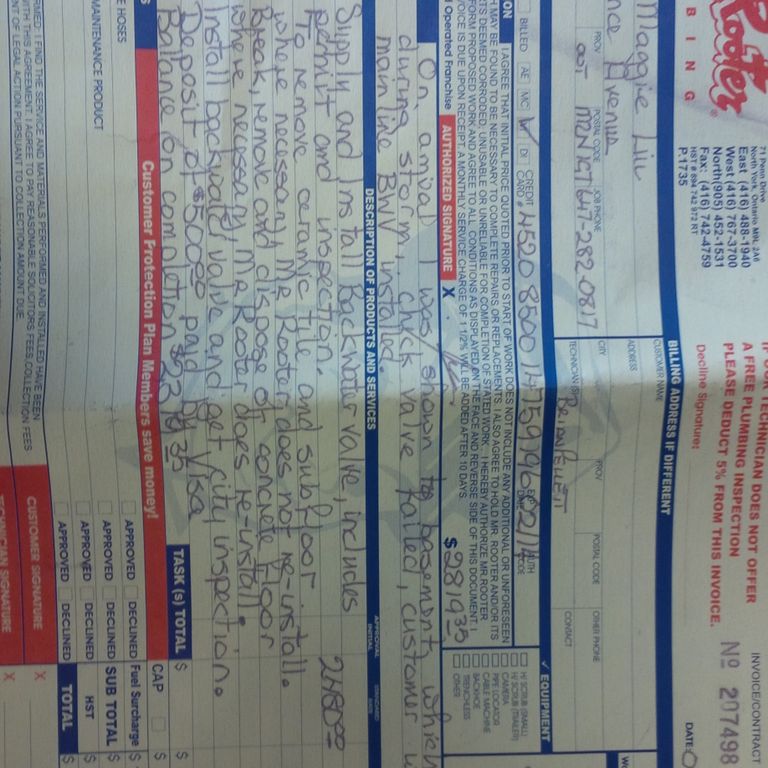 Rooter®
BING
71 Penn Drive
North York, Ontario M9L 2A6
East (416) 488-1940
West (416) 767-3700
North (905) 452-1531
Fax: (416) 742-4759
HST # 894 742 972 RT
P.1735
A FREE PLUMBING INSPECTION
PLEASE DEDUCT 5% FROM THIS INVOICE.
Decline Signature:
INVOICE/CONTRACT
Nº 207498
DATE:
Maggie Liu
nce Avenue
PROV
POSTAL CODE
JOB PHONE
ONT M2N1G7 647-282-0817
BILLING ADDRESS IF DIFFERENT
CUSTOMER NAME
ADDRESS
CITY
PROV
POSTAL CODE
OTHER PHONE
CONTACT
BILLED AE MC DI CREDIT CARD
AUTH CODE
✓ EQUIPMENT
H/ SCRUB (SMALL)
H/ SCRUB (TRAILER)
CAMERA
PIPE LOCATOR
CABLE MACHINE
BACKHOE
TRENCHLESS
OTHER
I AGREE THAT INITIAL PRICE QUOTED PRIOR TO START OF WORK DOES NOT INCLUDE ANY ADDITIONAL OR UNFORESEEN
H MAY BE FOUND TO BE NECESSARY TO COMPLETE REPAIRS OR REPLACEMENTS. I ALSO AGREE TO HOLD MR. ROOTER AND/OR ITS
RTS DEEMED CORRODED, UNUSABLE OR UNRELIABLE FOR COMPLETION OF STATED WORK. I HEREBY AUTHORIZE MR. ROOTER
FORM PROPOSED WORK AND AGREE TO ALL CONDITIONS AS DISPLAYED BY THE FACE AND REVERSE SIDE OF THIS DOCUMENT. I
VOICE IS DUE UPON RECEIPT. A MONTHLY SERVICE CHARGE OF 1 1/2% WILL BE ADDED AFTER 10 DAYS.
Operated Franchise AUTHORIZED SIGNATURE X $ 2819.35
On arrival I was shown to basement, which
during storm, check valve failed, customer
mainline BWV installed.
DESCRIPTION OF PRODUCTS AND SERVICES
Supply and Install Backwater valve, includes
permit and inspection 2480.00
To remove ceramic tile and subfloor
where necessary Mr Rooter does not re-install.
Break, remove and dispose of concrete floor
where necessary, Mr Rooter does re-install.
Install backwater valve and get city inspection.
Deposit of $500.00 paid by Visa
Balance on completion
TASK (s) TOTAL $
Customer Protection Plan Members save money!
CAP $
HOSES
MAINTENANCE PRODUCT
APPROVED DECLINED Fuel Surcharge $
APPROVED DECLINED SUB TOTAL $
APPROVED DECLINED HST $
APPROVED DECLINED TOTAL $
I FIND THE SERVICE AND MATERIALS PERFORMED AND INSTALLED HAVE BEEN
WITH THIS AGREEMENT. I AGREE TO PAY REASONABLE SOLICITORS FEES, COLLECTION FEES
OF LEGAL ACTION PURSUANT TO COLLECTION AMOUNT DUE.
CUSTOMER SIGNATURE X
TECHNICIAN SIGNATURE X